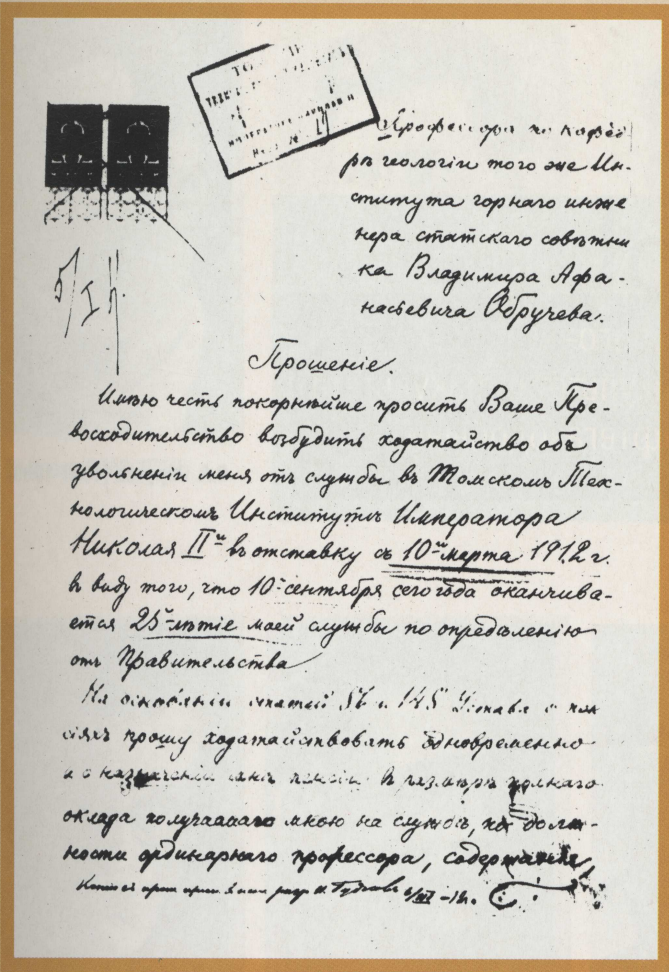 Профессора по кафед
ры геологіи того же Ин-
ститута горнаго инже
нера статскаго совѣтни
ка Владимира Афа-
насьевича Обручева.
5/I
Прошеніе.
Имѣю честь покорнѣйше просить Ваше Пре-
восходительство возбудить ходатайство объ
увольненіи меня отъ службы въ Томскомъ Тех-
нологическомъ Институтѣ Императора
Николая IIго въ отставку съ 10го марта 1912 г.
въ виду того, что 10го сентября сего года оканчива-
ется 25-лѣтіе моей службы по опредѣленію
отъ Правительства
На основаніи статей 145 Устава о пен
сіяхъ прошу ходатайствовать одновременно
и о назначеніи мнѣ пенсіи въ размѣрѣ полнаго
оклада получаемаго мною на службѣ, по долж-
ности ординарнаго профессора, содержанія